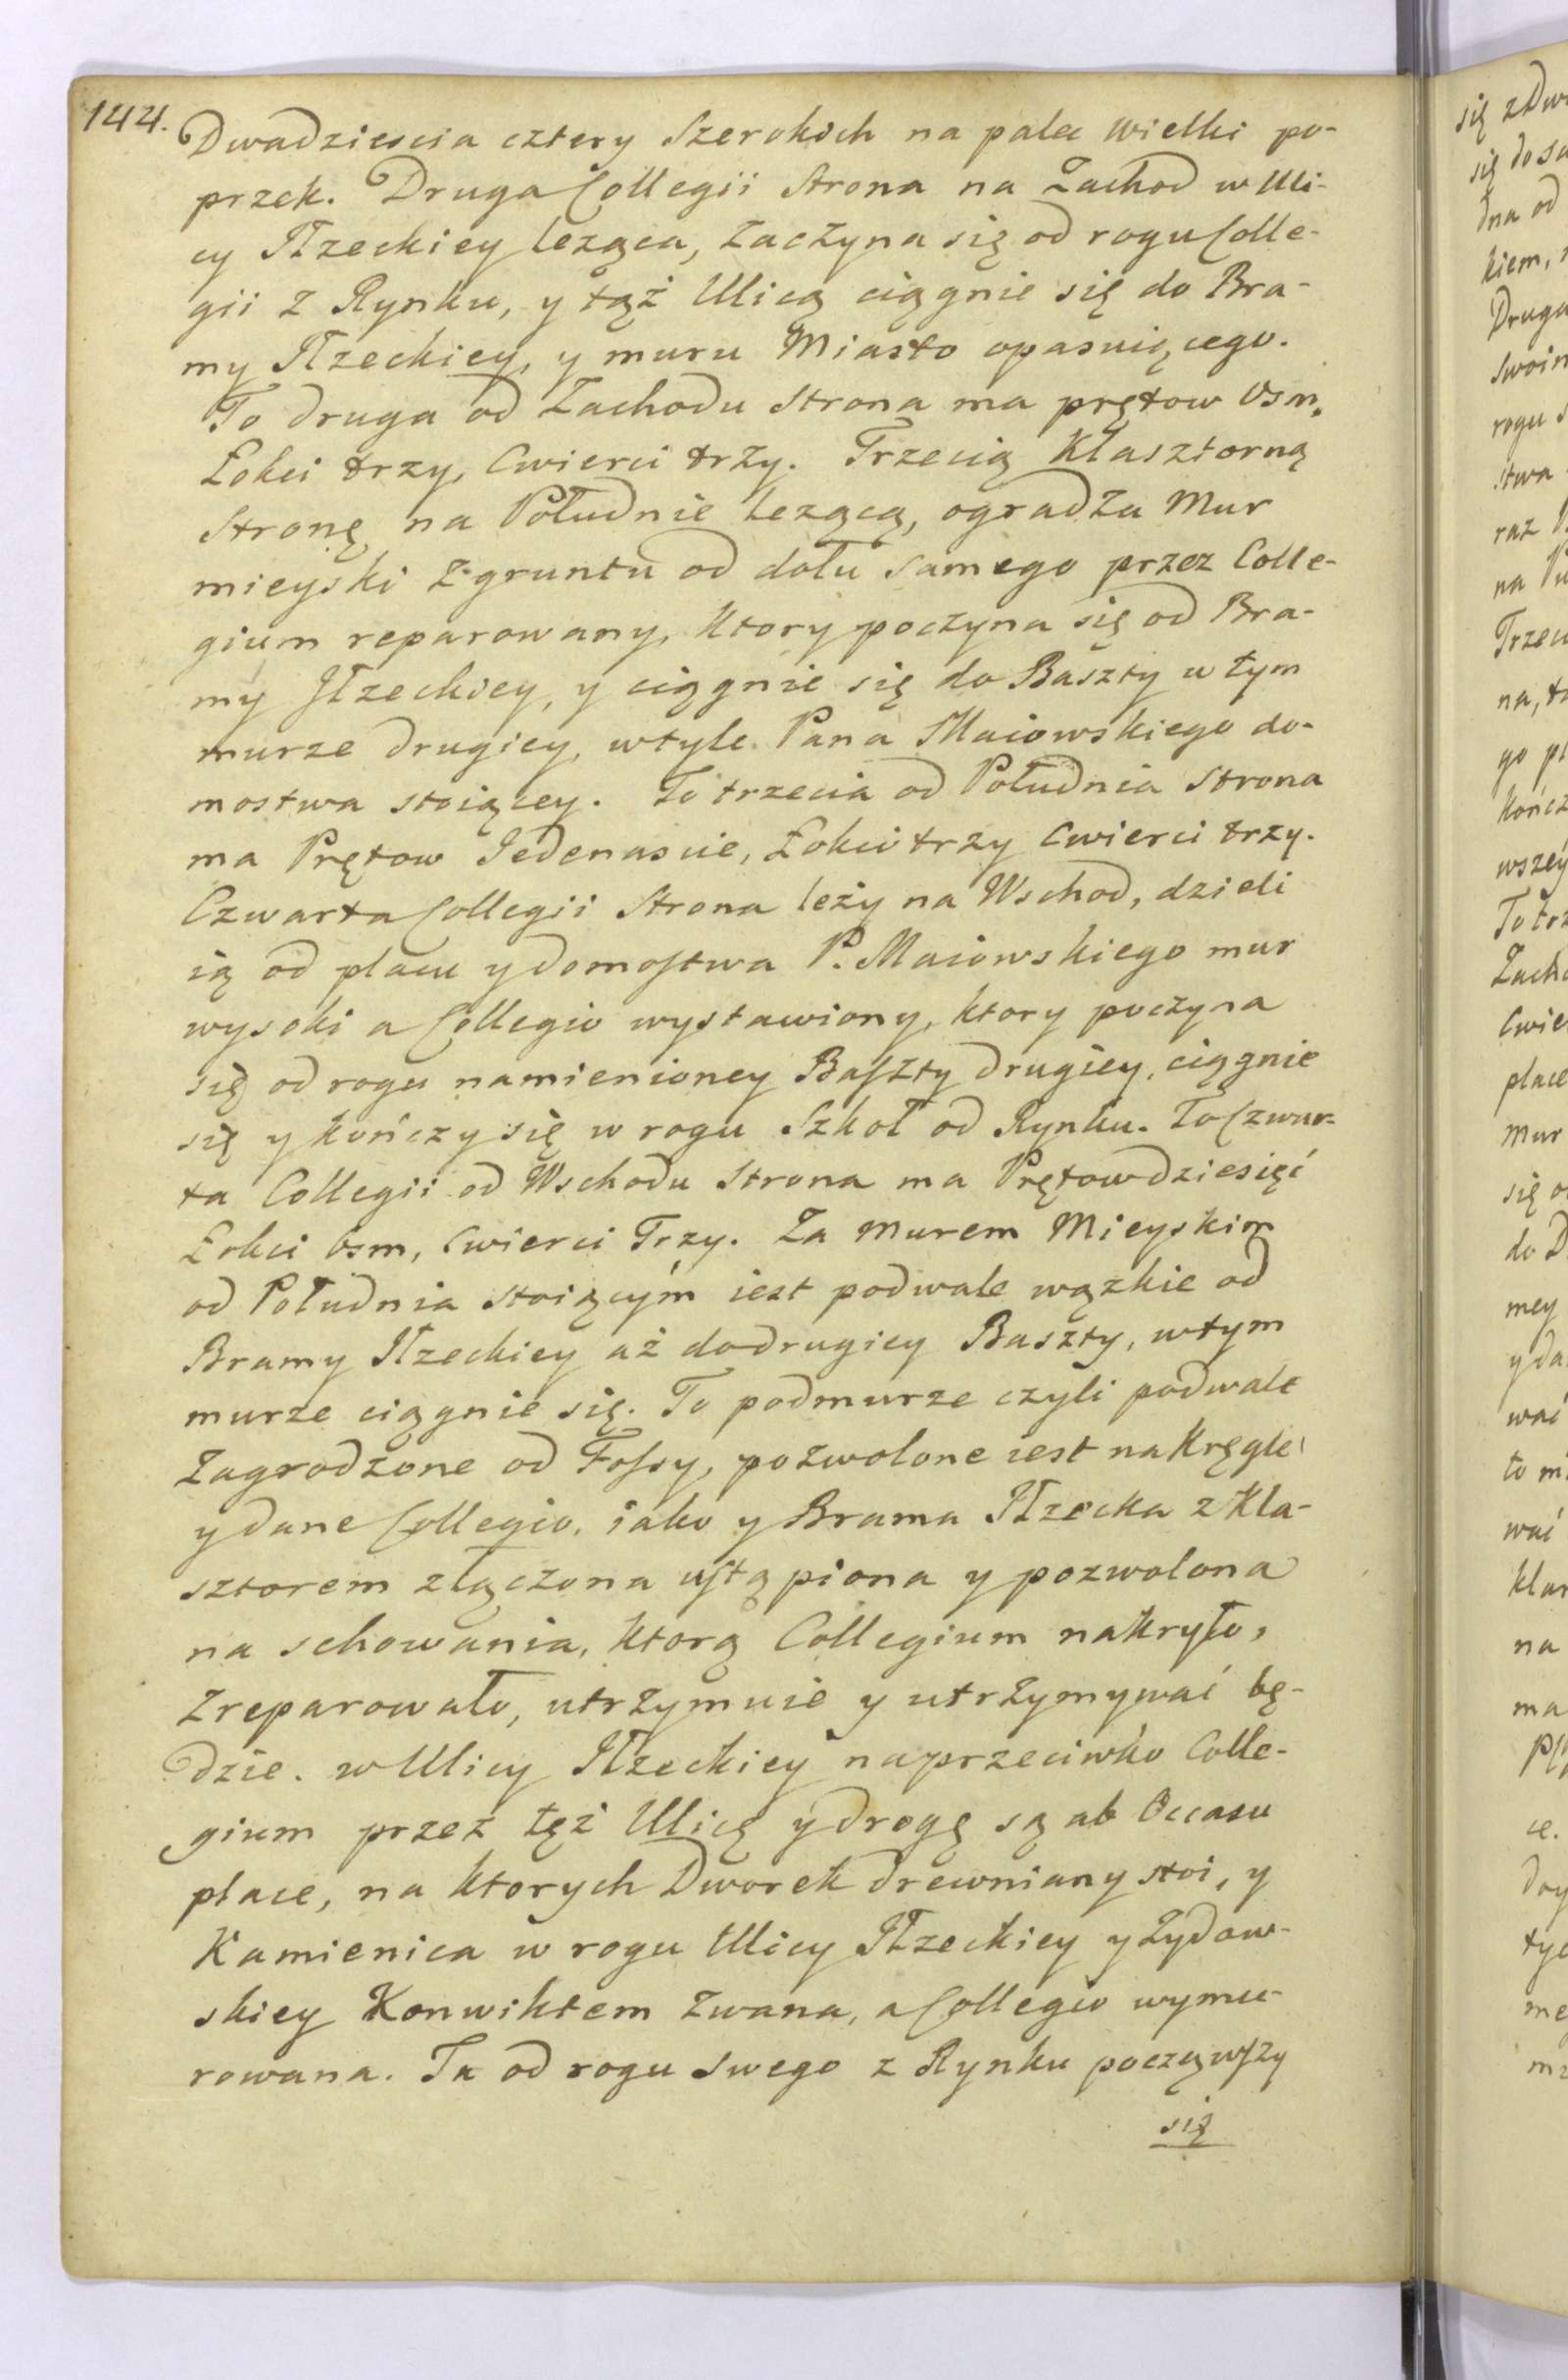 144.
Dwadziescia cztery Szerokich na palec wielki po-
przek. Druga Collegii Strona na Zachod w Uli-
cy Iłzeckiey leząca, zaczyna się od rogu Colle-
gii z Rynku, y tąż Ulicą ciągnie się do Bra-
my Iłzeckiey, y muru Miasto opasuiącego.
To druga od Zachodu Strona ma prętow Osm,
Łokci trzy, Cwierci trzy. Trzecią Klasztorną
Stronę na Południe lezącą, ogradza Mur
mieyski z gruntu od dołu samego przez Colle-
gium reparowany, ktory poczyna się od Bra-
my Iłzeckiey, y ciągnie się do Baszty w tym
murze drugiey, w tyle Pana Maiowskiego do-
mostwa stoiącey. To trzecia od Południa Strona
ma Prętow Iedenascie, Łokci trzy Cwierci trzy.
Czwarta Collegii Strona leży na Wschod, dzieli
ią od placu y domostwa P. Maiowskiego mur
wysoki a Collegio wystawiony, ktory poczyna
się od rogu namienioney Baszty drugiey, ciągnie
się y kończy się w rogu Szkoł od Rynku. To Czwar-
ta Collegii od Wschodu Strona ma Prętow dziesięć
Łokci osm, Cwierci Trzy. Za Murem Mieyskim
od Południa stoiącym iest podwale wązkie od
Bramy Iłzeckiey aż do drugiey Baszty, w tym
murze ciągnie się. To podmurze czyli podwale
zagrodzone od Fossy, pozwolone iest na Kręgle
y dane Collegio, iako y Brama Iłzecka z Kla-
sztorem złączona ustąpiona y pozwolona
na schowania, ktorą Collegium nakryło,
zreparowało, utrzymuie y utrzymywać bę-
dzie. w Ulicy Iłzeckiey naprzeciwko Colle-
gium przez tęż Ulicę y drogę są ab Occasu
place, na ktorych Dworek drewniany stoi, y
Kamienica w rogu Ulicy Iłzeckiey y Zydow-
skiey Konwiktem zwana, a Collegio wymu-
rowana. Ta od rogu swego z Rynku począwszy
się